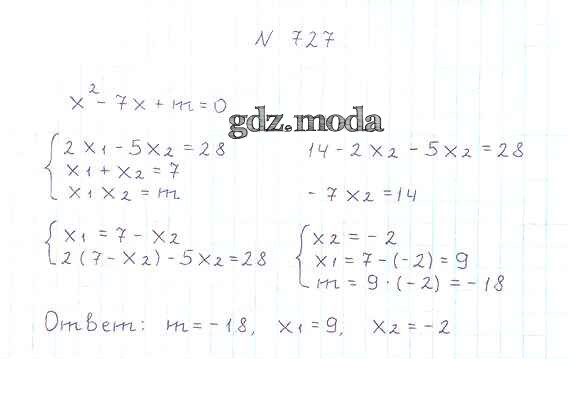 N 727
x² - 7x + m = 0
gdz.moda
2x₁ - 5x₂ = 28
x₁ + x₂ = 7
x₁ x₂ = m
14 - 2x₂ - 5x₂ = 28
- 7x₂ = 14
x₁ = 7 - x₂
2(7 - x₂) - 5x₂ = 28
x₂ = - 2
x₁ = 7 - (-2) = 9
m = 9 · (-2) = - 18
Ответ: m = - 18, x₁ = 9, x₂ = - 2